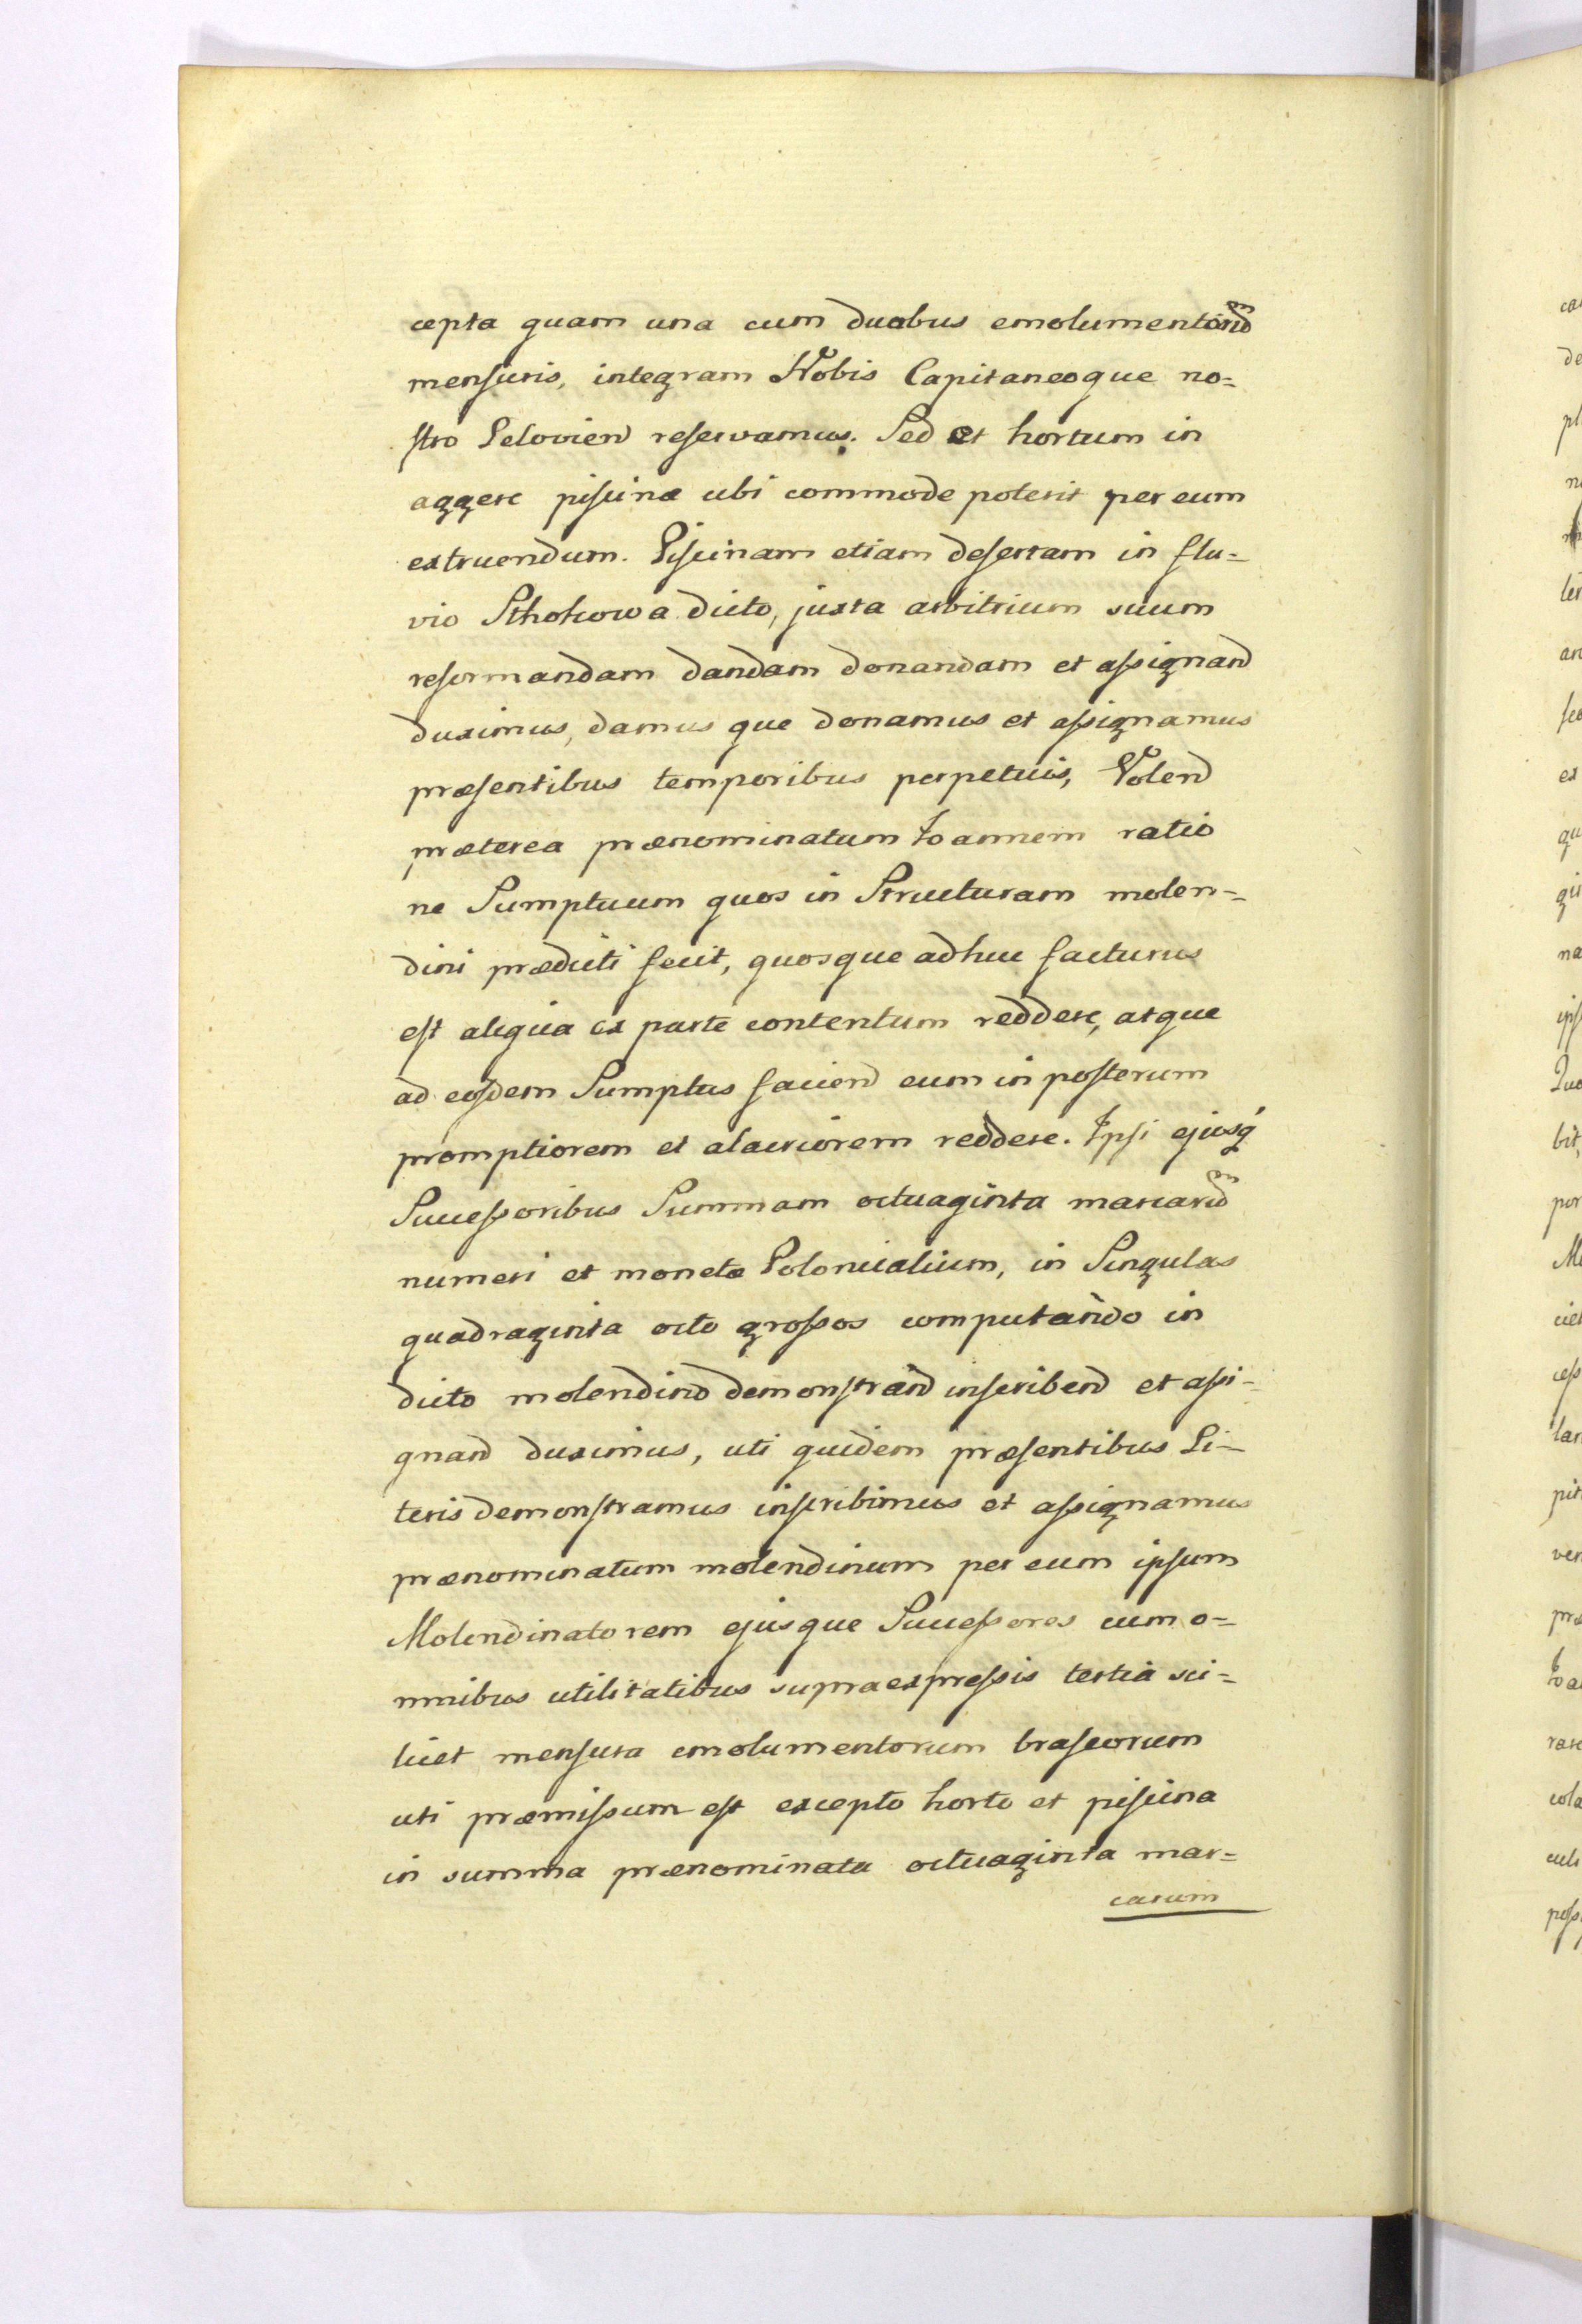 cepta quam una cum duabus emolumentorũm
mensuris, integram Nobis Capitaneoque no=
stro Selovien reservamus. Sed et hortum in
aggere piscinæ ubi commode poterit per eum
extruendum. Piscinam etiam desertam in flu=
vio Sthokowa dicto, juxta arbitrium suum
reformandam dandam donandam et assignand
duximus, damus que donamus et assignamus
præsentibus temporibus perpetuis, Volend
præterea prænominatum Joannem ratio
ne Sumptuum quos in Structuram molen=
dini prædicti fecit, quosque adhuc facturus
est aliqua ex parte contentum reddere, atque
ad eosdem Sumptus faciend eum in posterum
promptiorem et alacriorem reddere. Ipsi ejusq́
Successoribus Summam octuaginta marcarum
numeri et monetæ Polonicalium, in Singulas
quadraginta octo grossos computando in
dicto molendino demonstrand inscribend et assi=
gnand duximus, uti quidem præsentibus Li-
teris demonstramus inscribimus et assignamus
prænominatum molendinum per eum ipsum
Molendinatorem ejusque Successores cum o=
mnibus utilitatibus supraexpressis tertia sci=
licet mensura emolumentorum braseorum
uti præmissum est excepto horto et piscina
in summa prænominata octuaginta mar=
carum